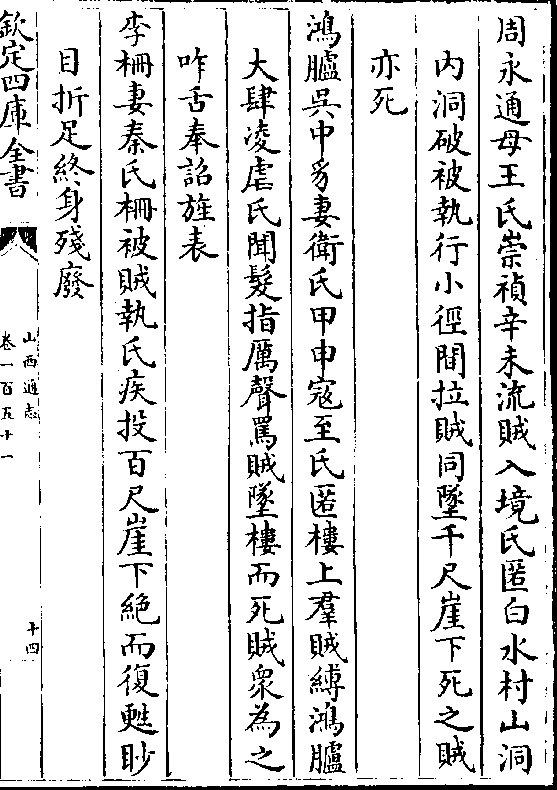 周永通母王氏崇禎辛未流賊入境氏匿白水村山洞
内洞破被執行小徑間拉賊同墜千尺崖下死之賊
亦死
鴻臚吳中豸妻衛氏甲申寇至氏匿樓上羣賊縛鴻臚
大肆凌虐氏聞髮指厲聲罵賊墜樓而死賊衆為之
咋舌奉詔旌表
李柵妻秦氏柵被賊執氏疾投百尺崖下絶而復甦眇
目折足終身殘廢
欽定四庫全書
山西通志
卷一百五十一
十四